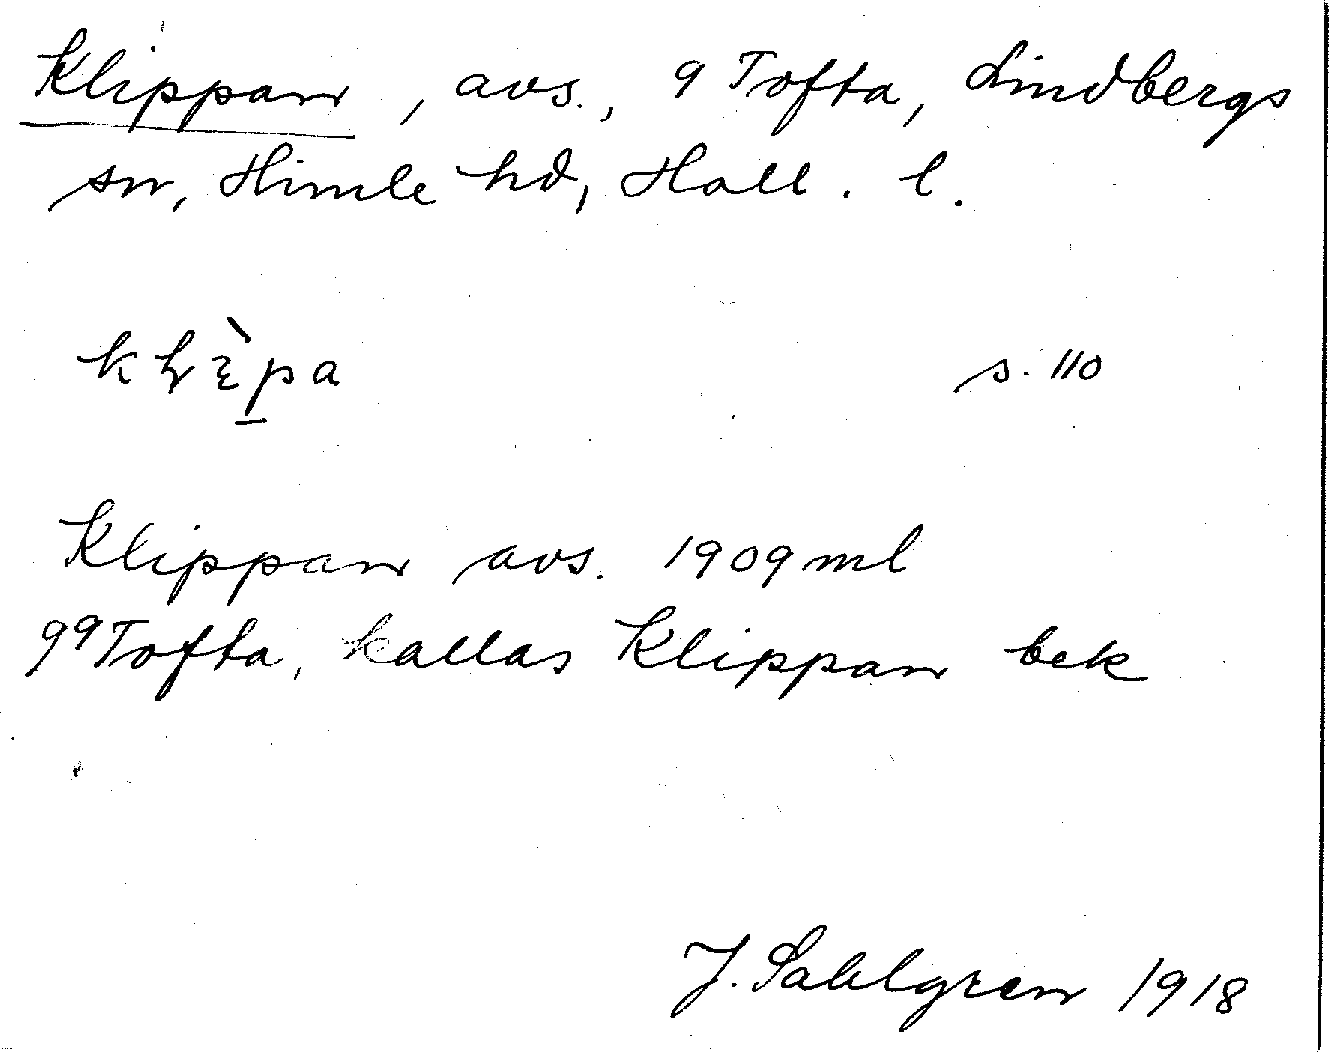 Klippan, avs., 9 Tofta, Lindbergs
sn, Himle hd, Hall. l.
klɛ̀pa s. 110
Klippan avs. 1909 ml
9⁹ Tofta, kallas Klippan bek
J. Sahlgren 1918